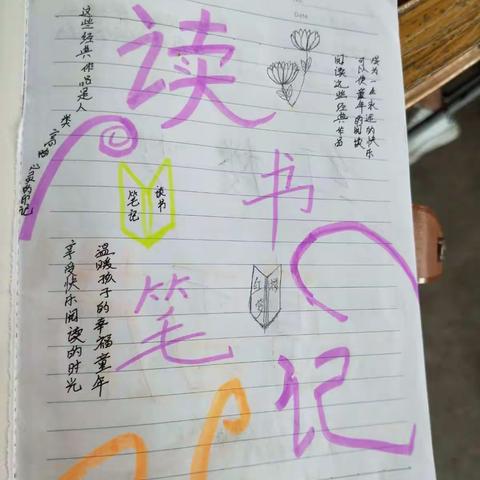 读
书
笔
记
Date
这些经典作品是人
类
心灵的印记
成为一生永远的快乐
可以使童年的阅读
阅读这些经典作品
读书
笔记
温暖孩子的幸福童年
享受快乐阅读的时光